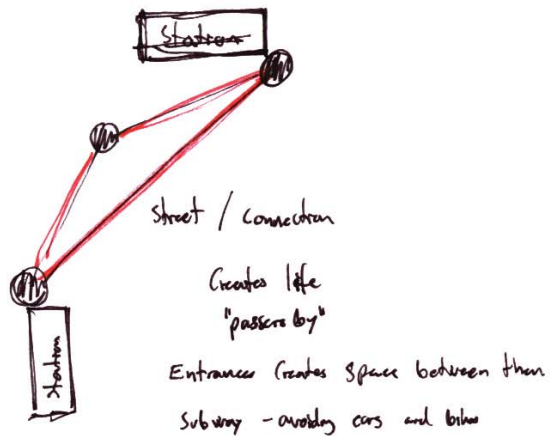 Station
Street / Connection
Creates life
"passers by"
Station
Entrances Creates Space between than
Subway - avoiding cars and bikes